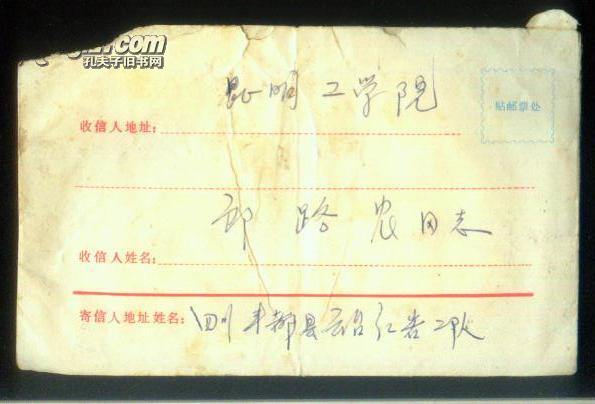 孔夫子旧书网
昆明工学院
贴邮票处
收信人地址:
邱路农同志
收信人姓名:
寄信人地址姓名: 四川丰都县云台红岩二队